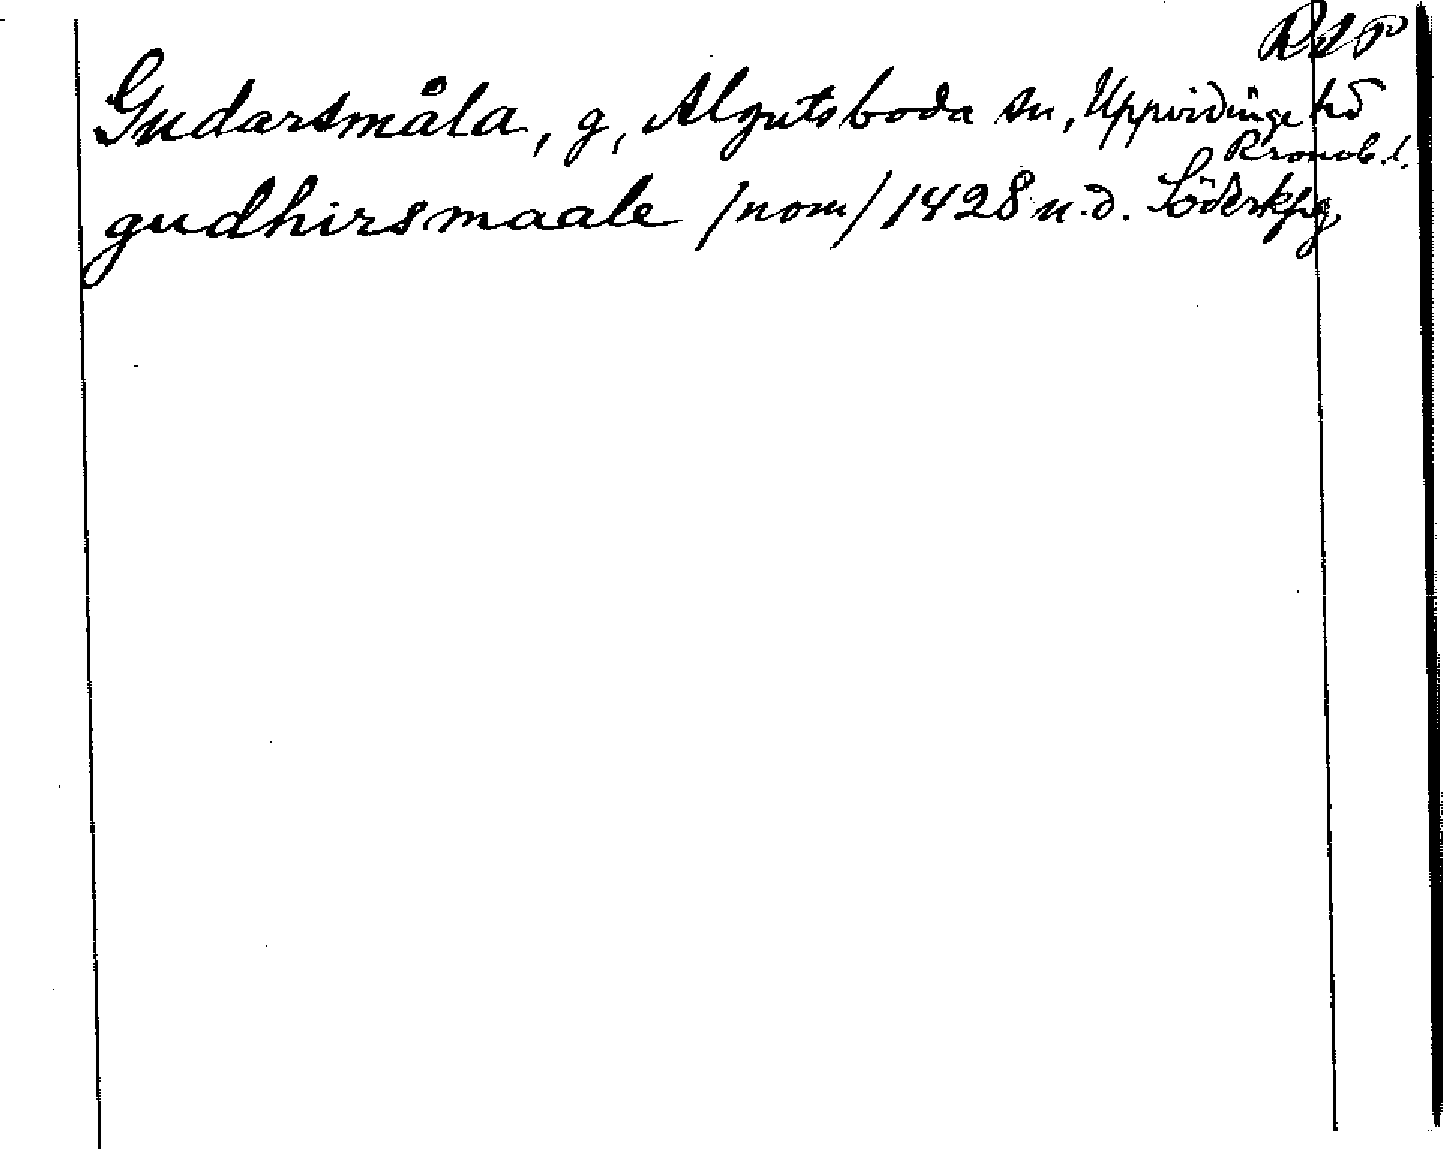 RAP
Gudarsmåla, g, Algutsboda sn, Uppvidinge hd
Kronob. l.
gudhirsmaale /nom/ 1428 u.d. Söderkpg